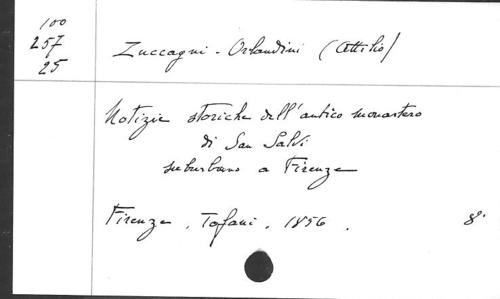 100
257
25
Zuccagni-Orlandini (Attilio)
Notizie storiche dell'antico monastero
di San Salvi
suburbano a Firenze
Firenze, Tofani, 1856. 8°